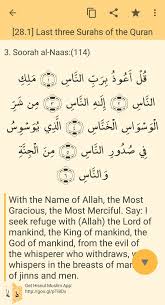 [28.1] Last three Surahs of the Quran
3. Soorah al-Naas:(114)
قُلْ أَعُوذُ بِرَبِّ النَّاسِ ۝ مَلِكِ
النَّاسِ ۝ إِلَٰهِ النَّاسِ ۝ مِن شَرِّ
الْوَسْوَاسِ الْخَنَّاسِ ۝ الَّذِي يُوَسْوِسُ
فِي صُدُورِ النَّاسِ ۝ مِنَ الْجِنَّةِ
وَالنَّاسِ ۝
With the Name of Allah, the Most
Gracious, the Most Merciful. Say: I
seek refuge with (Allah) the Lord of
mankind, the King of mankind, the
God of mankind, from the evil of
the whisperer who withdraws, w
whispers in the breasts of mar
of jinns and men.
Get Hisnul Muslim App: